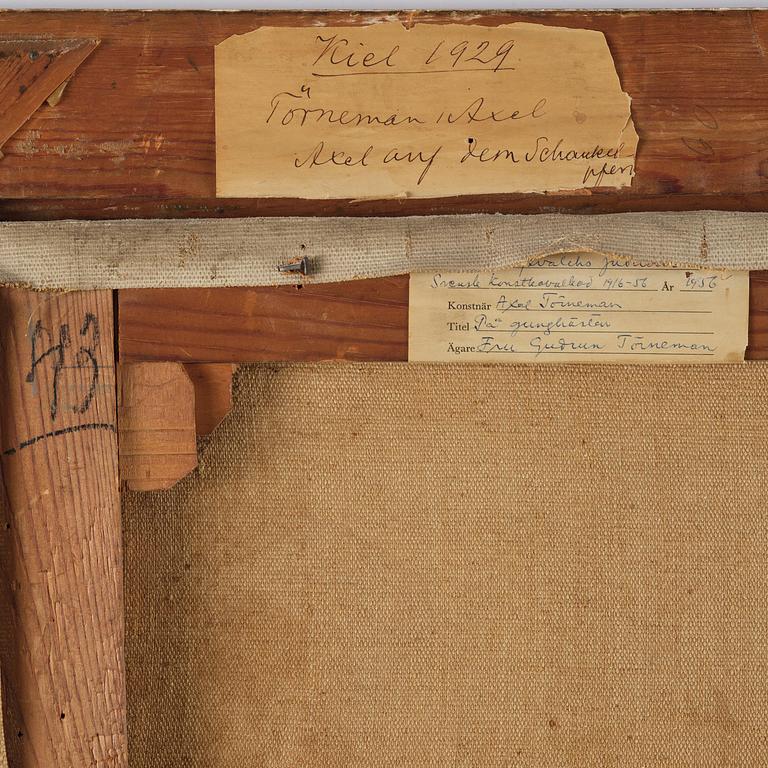 Kiel 1929
Törneman, Axel
Axel auf dem Schaukel
pferd
Svensk Konstkavalkad 1916-56 År 1956
Konstnär Axel Törneman
Titel På gunghästen
Ägare Fru Gudrun Törneman
43